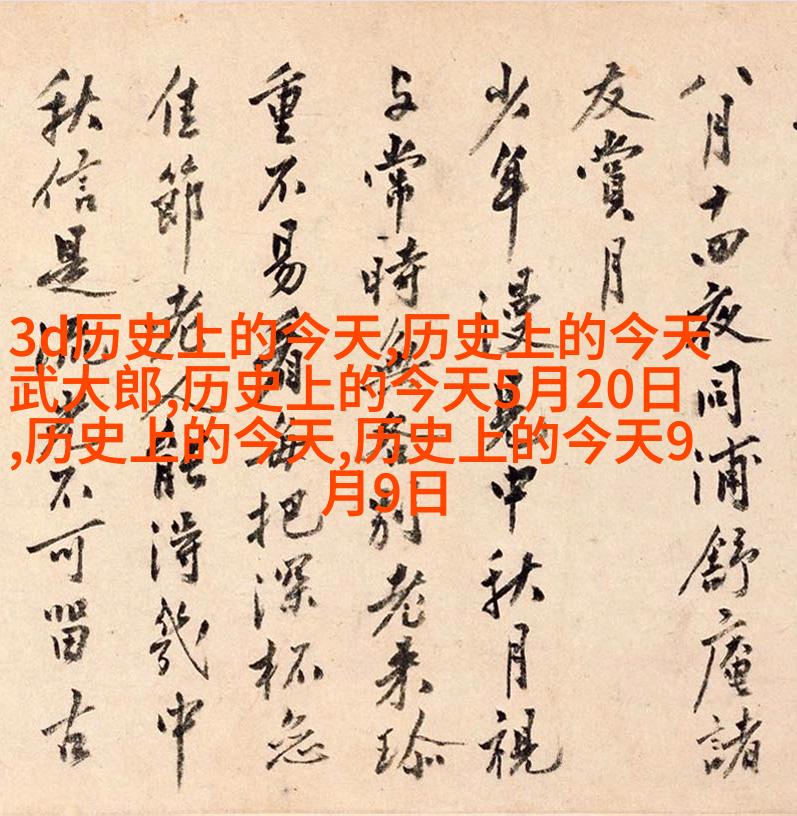 八月十四夜同浦舒庵諸
友賞月
少年漫見中秋月視
与常時無各別老来珎
重不易看每把深杯
佳節老人能得幾中
秋信是流光不可留古
3d历史上的今天,历史上的今天
武大郎,历史上的今天5月20日
,历史上的今天,历史上的今天9
月9日